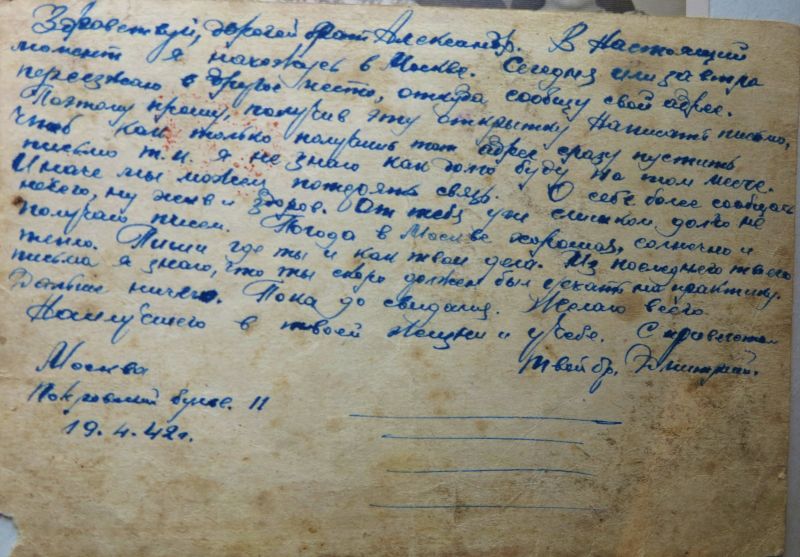 Здравствуй, дорогой брат Александр. В настоящий
момент я нахожусь в Москве. Сегодня или завтра
переезжаю в другое место, откуда сообщу свой адрес.
Поэтому прошу, получив эту открытку написать письмо,
чтоб как только получишь мой адрес сразу пустить
письмо т.к. я не знаю как долго буду на том месте.
Иначе мы можем потерять связь. О себе более сообщать
нечего, ну жив и здоров. От тебя уже слишком долго не
получаю писем. Погода в Москве хорошая, солнечно и
тепло. Пиши где ты и как твои дела. Из последнего твоего
письма я знаю, что ты скоро должен был уехать на практику.
Больше ничего. Пока до свидания. Желаю всего
Наилучшего в твоей жизни и учебе. С приветом
твой бр. Дмитрий.
Москва
Покровский бульв. 11
19.4.42г.